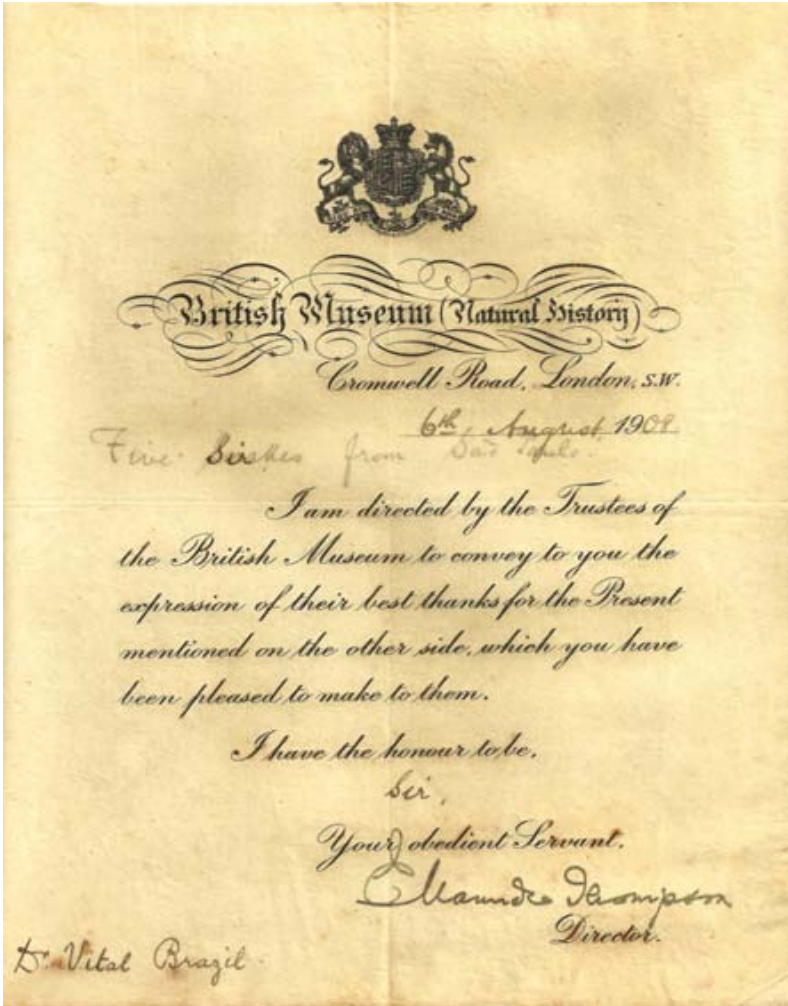 British Museum (Natural History)
Cromwell Road, London, S.W.
6th August, 1908
Five from São Paulo.
I am directed by the Trustees of
the British Museum to convey to you the
expression of their best thanks for the Present
mentioned on the other side, which you have
been pleased to make to them.
I have the honour to be,
Sir,
Your obedient Servant.
E Maunde Thompson
Director.
Dr. Vital Brazil.